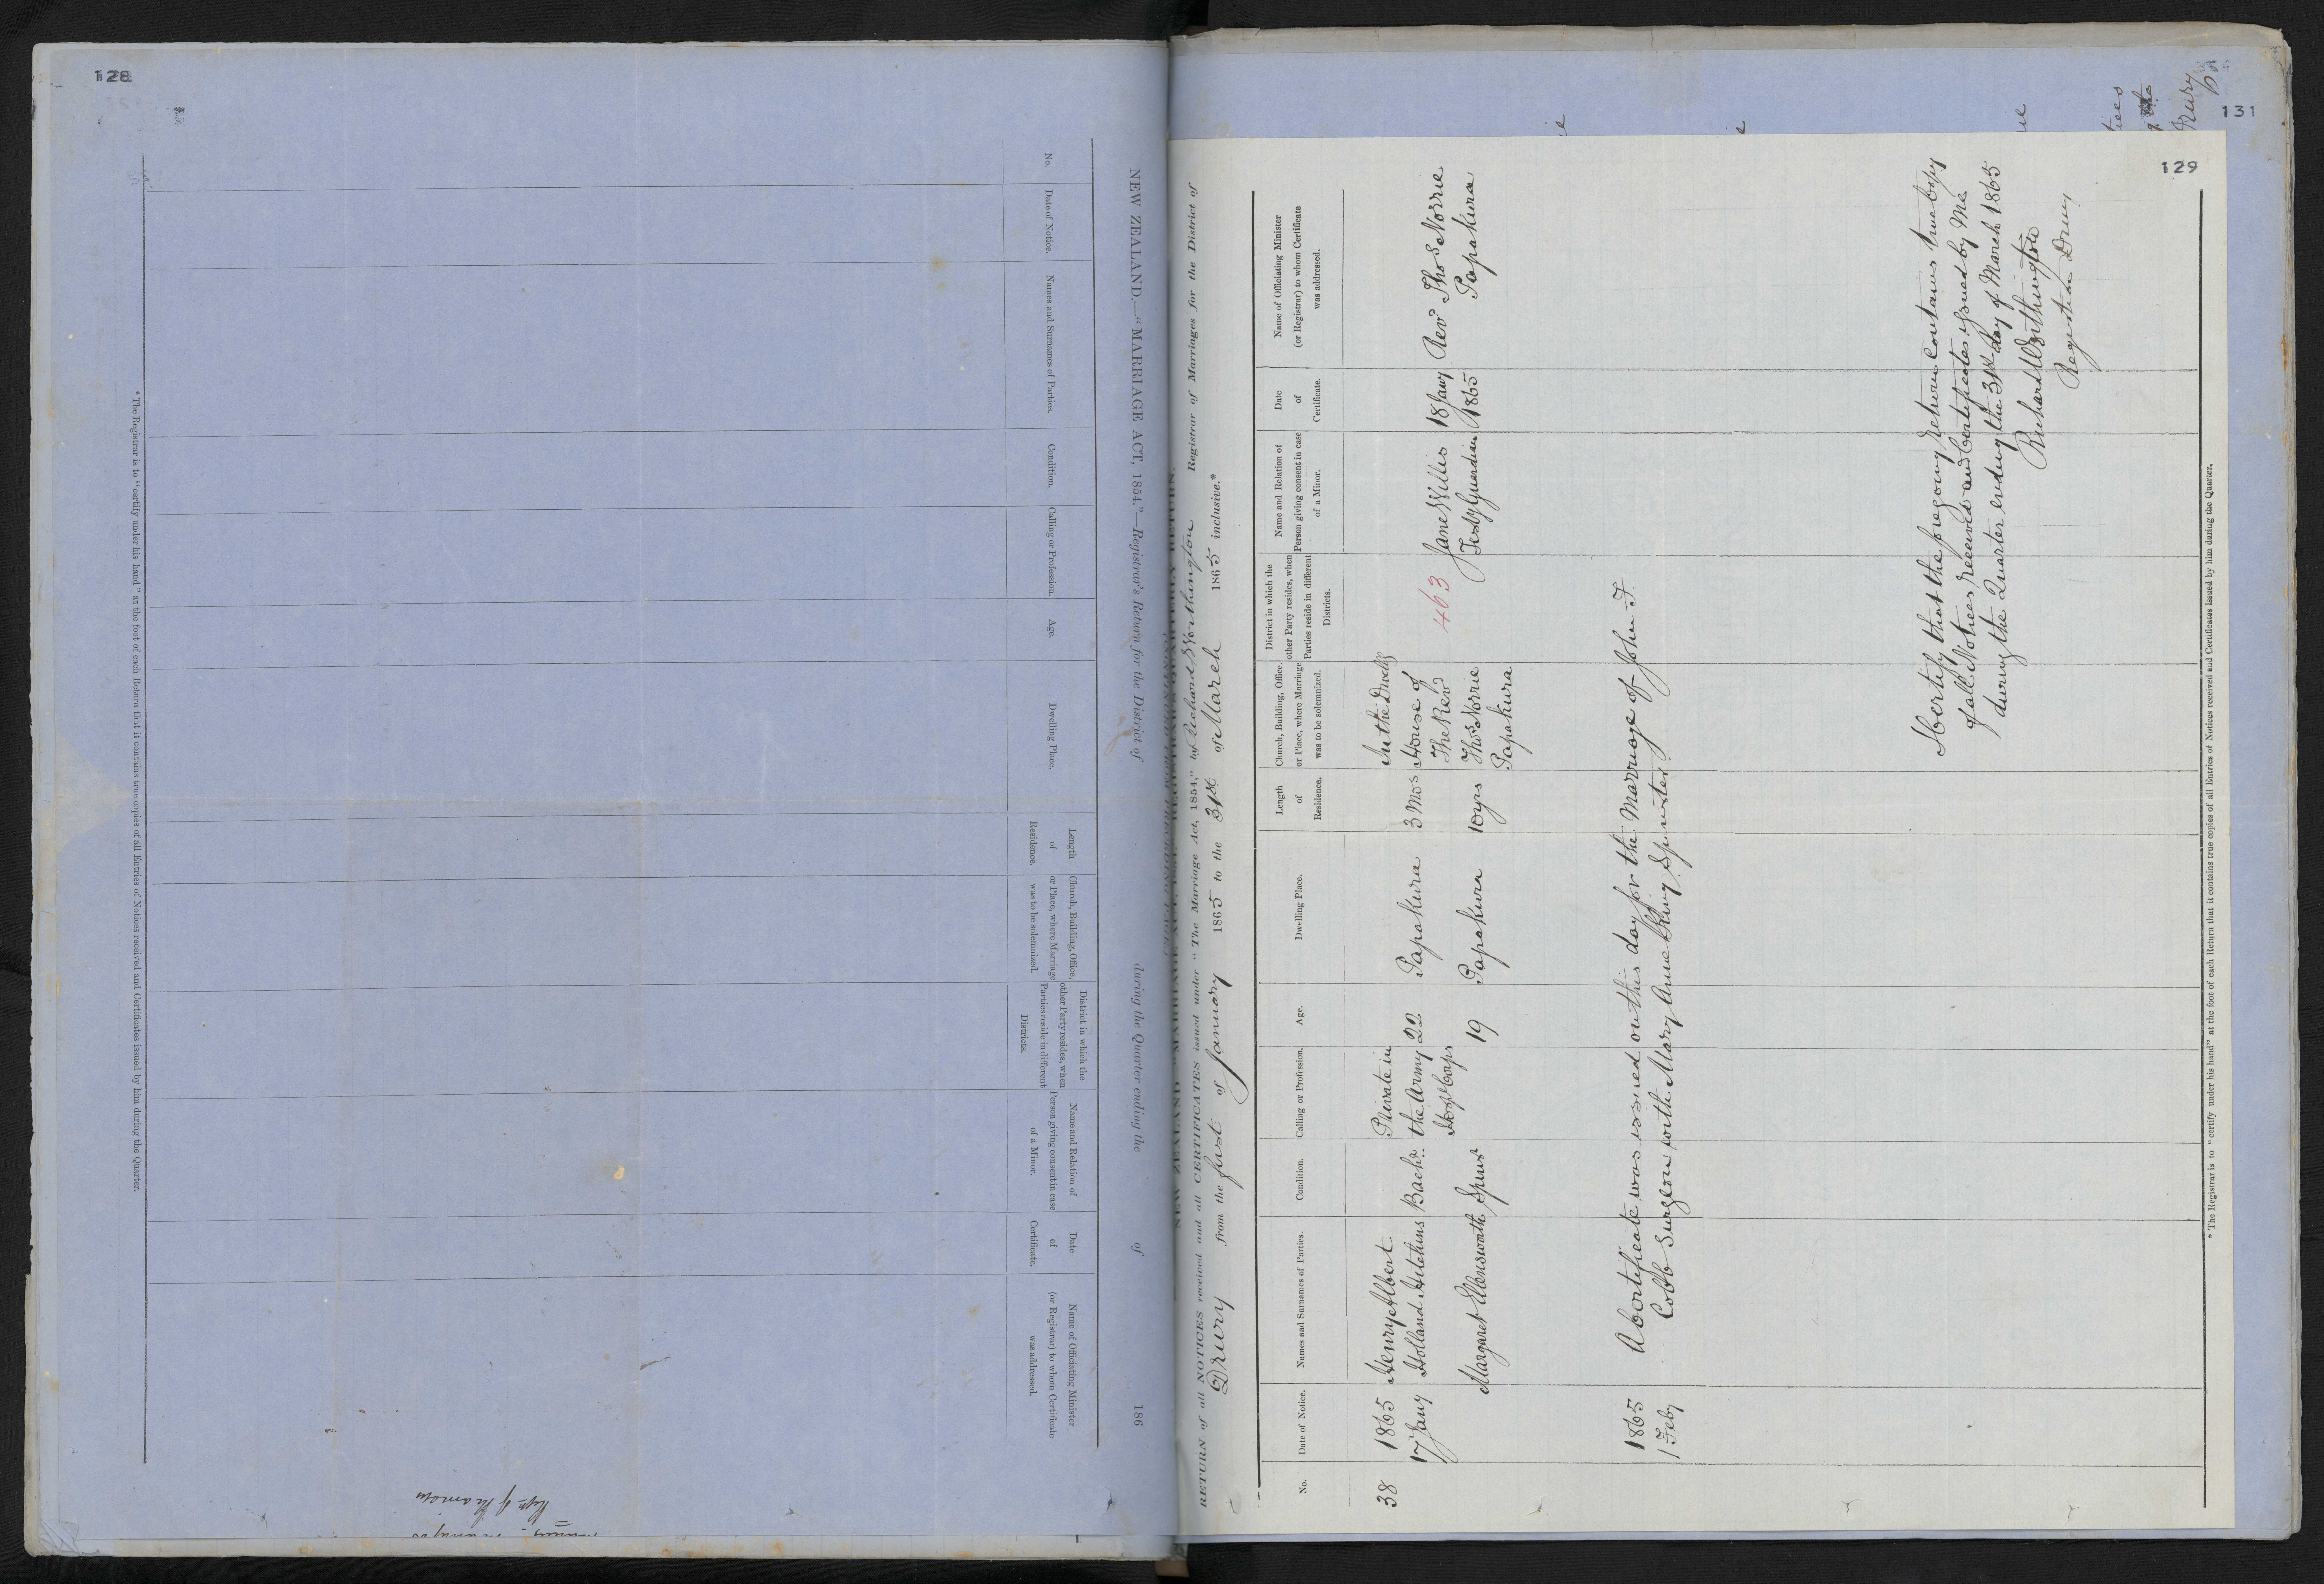 128
NEW ZEALAND.—"MARRIAGE ACT, 1854."—Registrar's Return for the District of during the Quarter ending the of 186
No.
Date of Notice.
Names and Surnames of Parties.
Condition.
Calling or Profession.
Age.
Dwelling Place.
Length
of
Residence.
Church, Building, Office,
or Place, where Marriage
was to be solemnized.
District in which the
other Party resides, when
Parties reside in different
Districts.
Name and Relation of
Person giving consent in case
of a Minor.
Date
of
Certificate.
Name of Officiating Minister
(or Registrar) to whom Certificate
was addressed.
* The Registrar is to "certify under his hand" at the foot of each Return that it contains true copies of all Entries of Notices received and Certificates issued by him during the Quarter.
131
Drury
129
RETURN of all NOTICES received and all CERTIFICATES issued under "The Marriage Act, 1854," by Richard Worthington Registrar of Marriages for the District of
Drury from the first of January 1865 to the 31st of March 1865 inclusive.*
No.
Date of Notice.
Names and Surnames of Parties.
Condition.
Calling or Profession.
Age.
Dwelling Place.
Length
of
Residence.
Church, Building, Office,
or Place, where Marriage
was to be solemnized.
District in which the
other Party resides, when
Parties reside in different
Districts.
Name and Relation of
Person giving consent in case
of a Minor.
Date
of
Certificate.
Name of Officiating Minister
(or Registrar) to whom Certificate
was addressed.
38
1865
17 Jany
Henry Albert
Holland Hitchins
Bachr
Private in
the Army
Hospl Corps
22
Papakura
3 Mos
In the Dwellg
House of
The Rev
Thos Norrie
Papakura
463
Jane Willis
Testy Guardian
18 Jany
1865
Rev Thos Norrie
Papakura
Margaret Ellensworth
Spinr
19
Papakura
10 yrs
1865
1 Feby
A Certificate was issued on this day for the Marriage of John F.
Cobb Surgeon with Mary Anne King Spinster
I Certify that the foregoing return contains true Copy
of all Notices received and Certificates issued by Me
during the Quarter ending the 31st day of March 1865
Richard Worthington
Registrar Drury
* The Registrar is to "certify under his hand" at the foot of each Return that it contains true copies of all Entries of Notices received and Certificates issued by him during the Quarter.